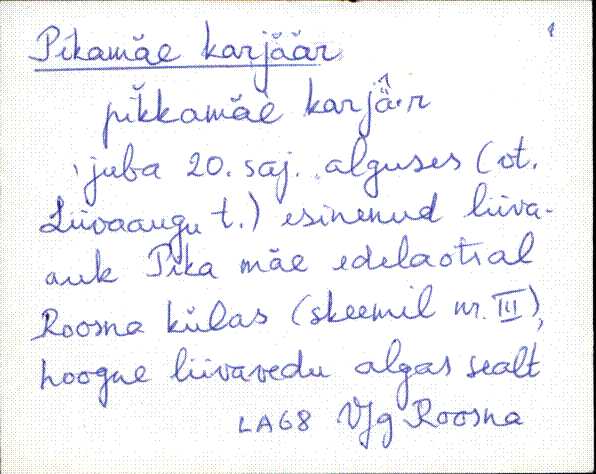 1
Pikamäe karjäär
pĭkkamäe karjä̂·r
juba 20. saj. alguses (vt.
Liivaaugu t.) esinenud liiva-
auk Pika mäe edelaotsal
Roosna külas (skeemil nr. III),
hoogne liivavedu algas sealt
LA68 VJg Roosna